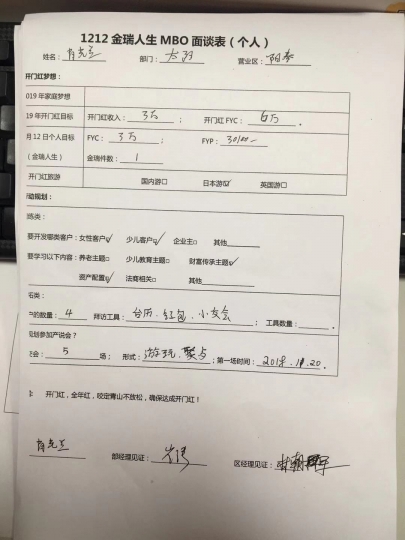 1212 金瑞人生 MBO 面谈表（个人）
姓名： 部门： 营业区：
开门红梦想：
019 年家庭梦想
19 年开门红目标 开门红收入： 3万 ； 开门红 FYC： 6万 。
月 12 日个人目标 FYC： 3万 ； FYP：
（金瑞人生） 金瑞件数： 1
开门红旅游 国内游□ 日本游☑ 英国游□
动规划：
练类：
要开发哪类客户：女性客户☑ 少儿客户☑ 企业主□ 其他
要学习以下内容：养老主题□ 少儿教育主题□ 财富传承主题☑
资产配置☑ 法商相关□ 其他
户的数量： 4 拜访工具： 台历、红包、小交会 ；工具数量： 。
规划参加产说会？
5 场； 形式： 游玩、聚点 ；第一场时间： 2018.11.20 。
开门红，全年红，咬定青山不放松，确保达成开门红！
部经理见证： 区经理见证：